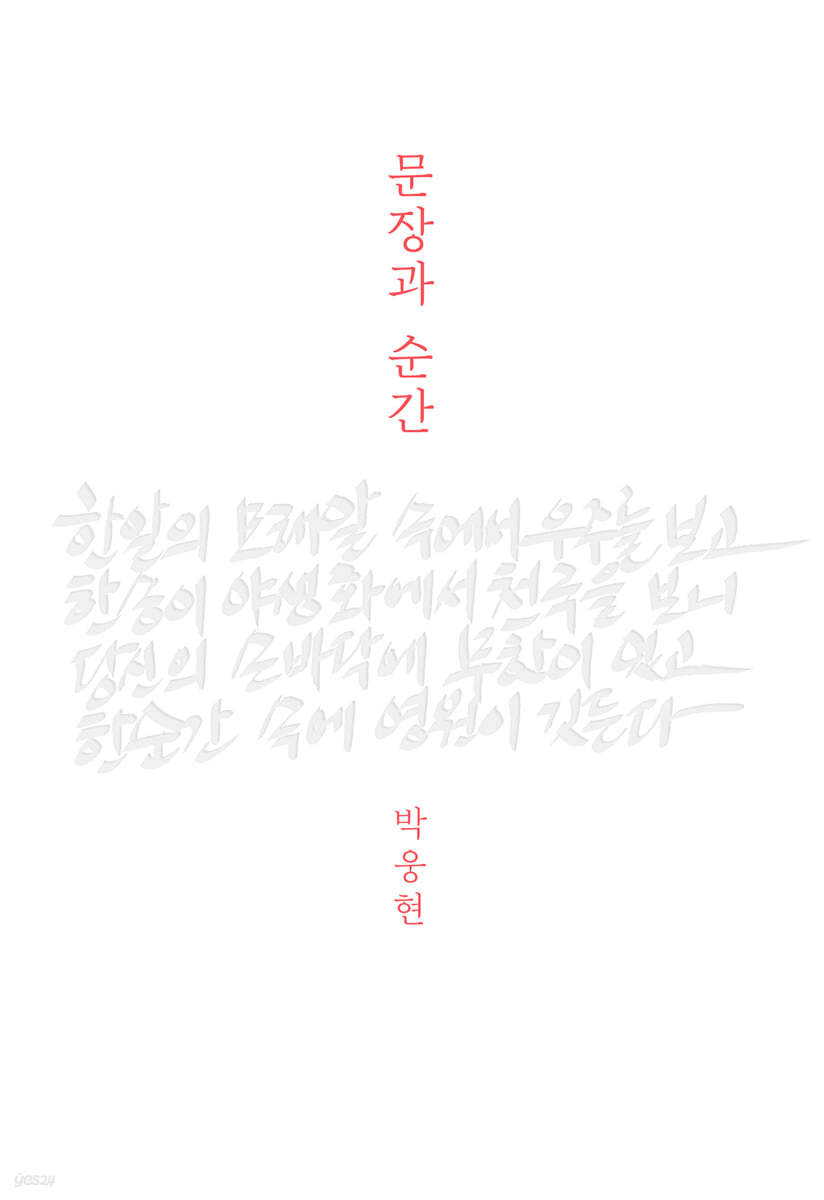 문장과 순간
한 알의 모래알 속에서 우주를 보고
한 송이 야생화에서 천국을 보니
당신의 손바닥에 무한이 있고
한순간 속에 영원이 깃든다
박웅현
yes24